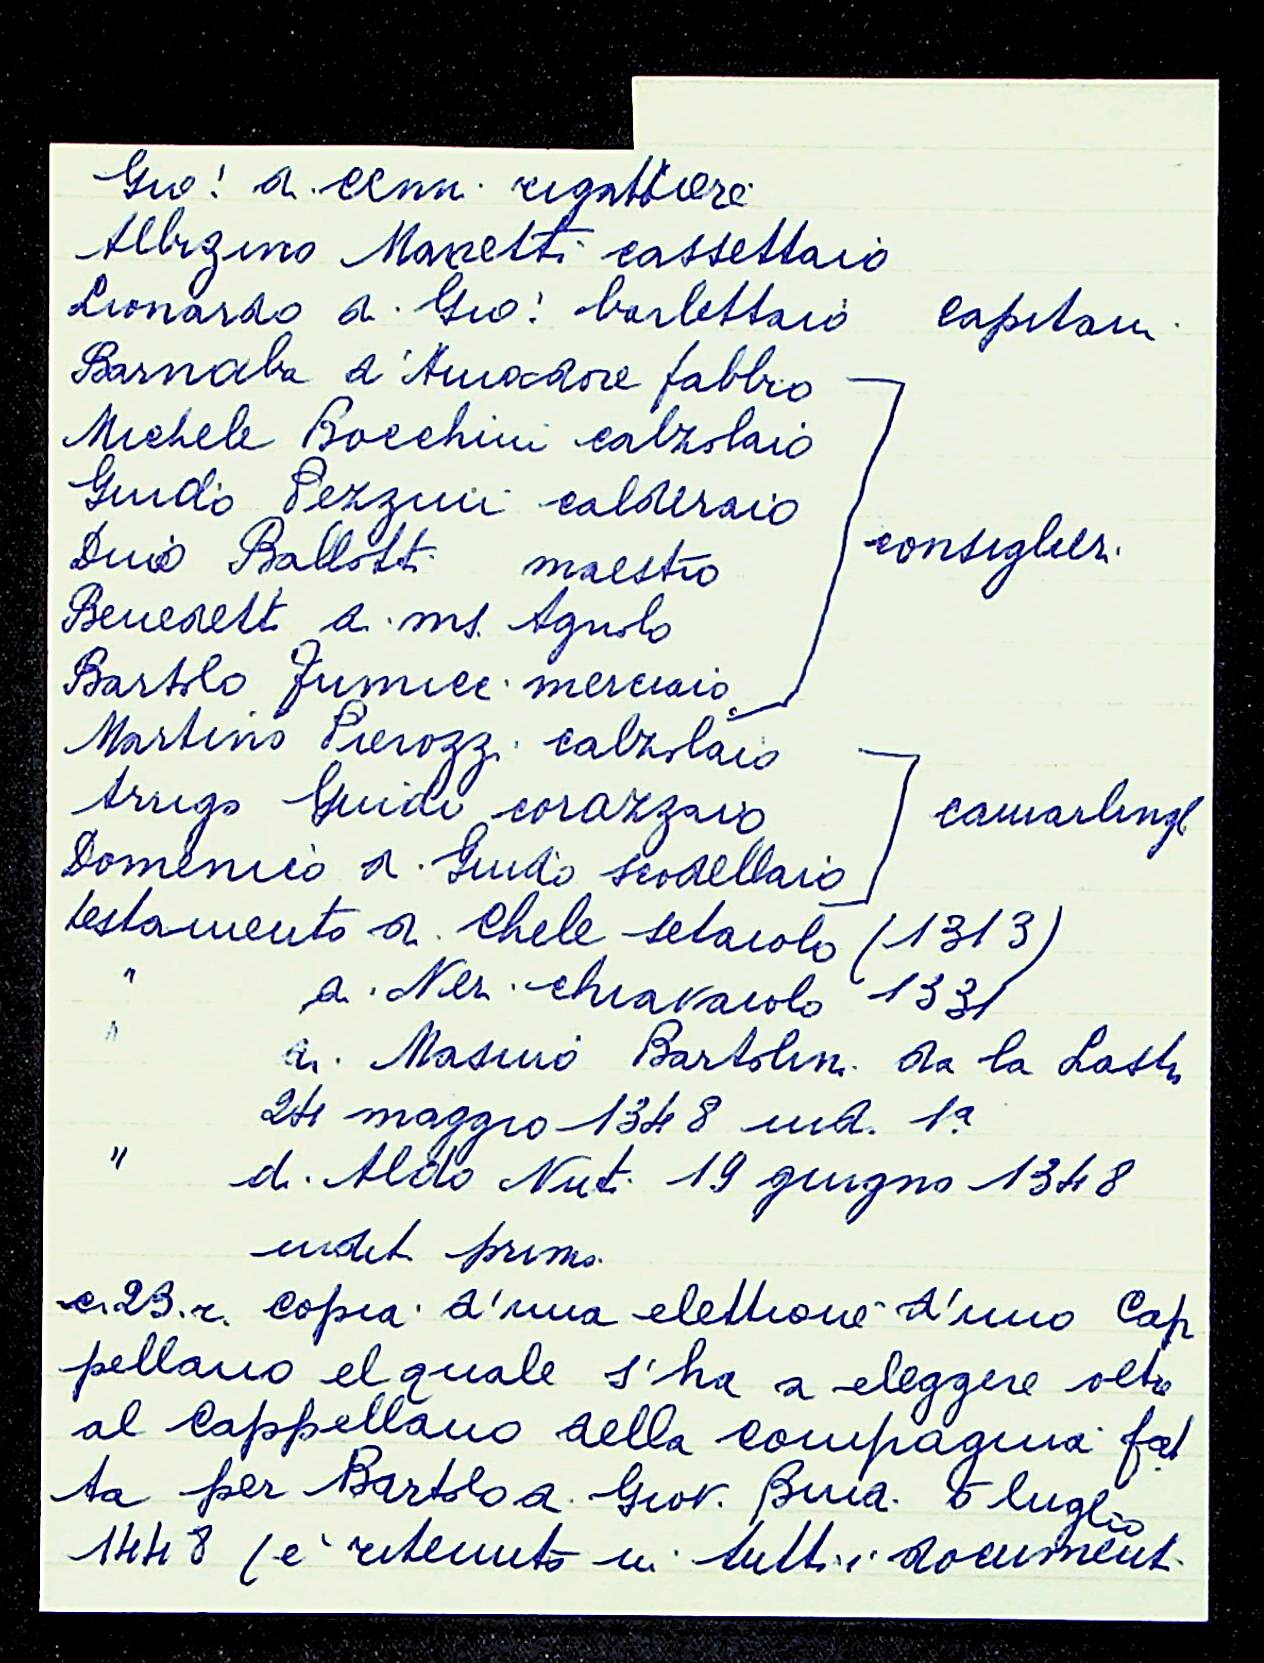 Gio: di Cenni rigattiere
Albizino Manetti cassettaio
Lionardo di Gio: barlettaio capitani
Barnaba d'Amadore fabbro
Michele Bocchini calzolaio
Guido Pezzuii calderaio
Duio Ballotti maestro consiglieri
Benedetti di ms. Agnolo
Bartolo Fumicci merciaio
Martino Pierozzi calzolaio
Arrigo Guidi corazzaio camarlinghi
Domenico di Guido scodellaio
testamento di Chele setaiolo (1313)
" di Neri chiavaiolo 1331
" di Masino Bartolini da la Lastra
24 maggio 1348 ind. 1ª
" di Aldo Nuti 19 giugno 1348
indit. prima
c. 23. r. copia d'una elettione d'uno Cap
pellano el quale s'ha a eleggere oltre
al Cappellano della compagnia fat
ta per Bartolo di Giov. 5 luglio
1448 (è ritenuto in tutti i documenti